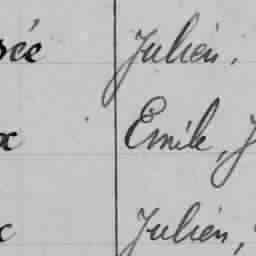 sée Julien.
x Emile, J
x Julien,